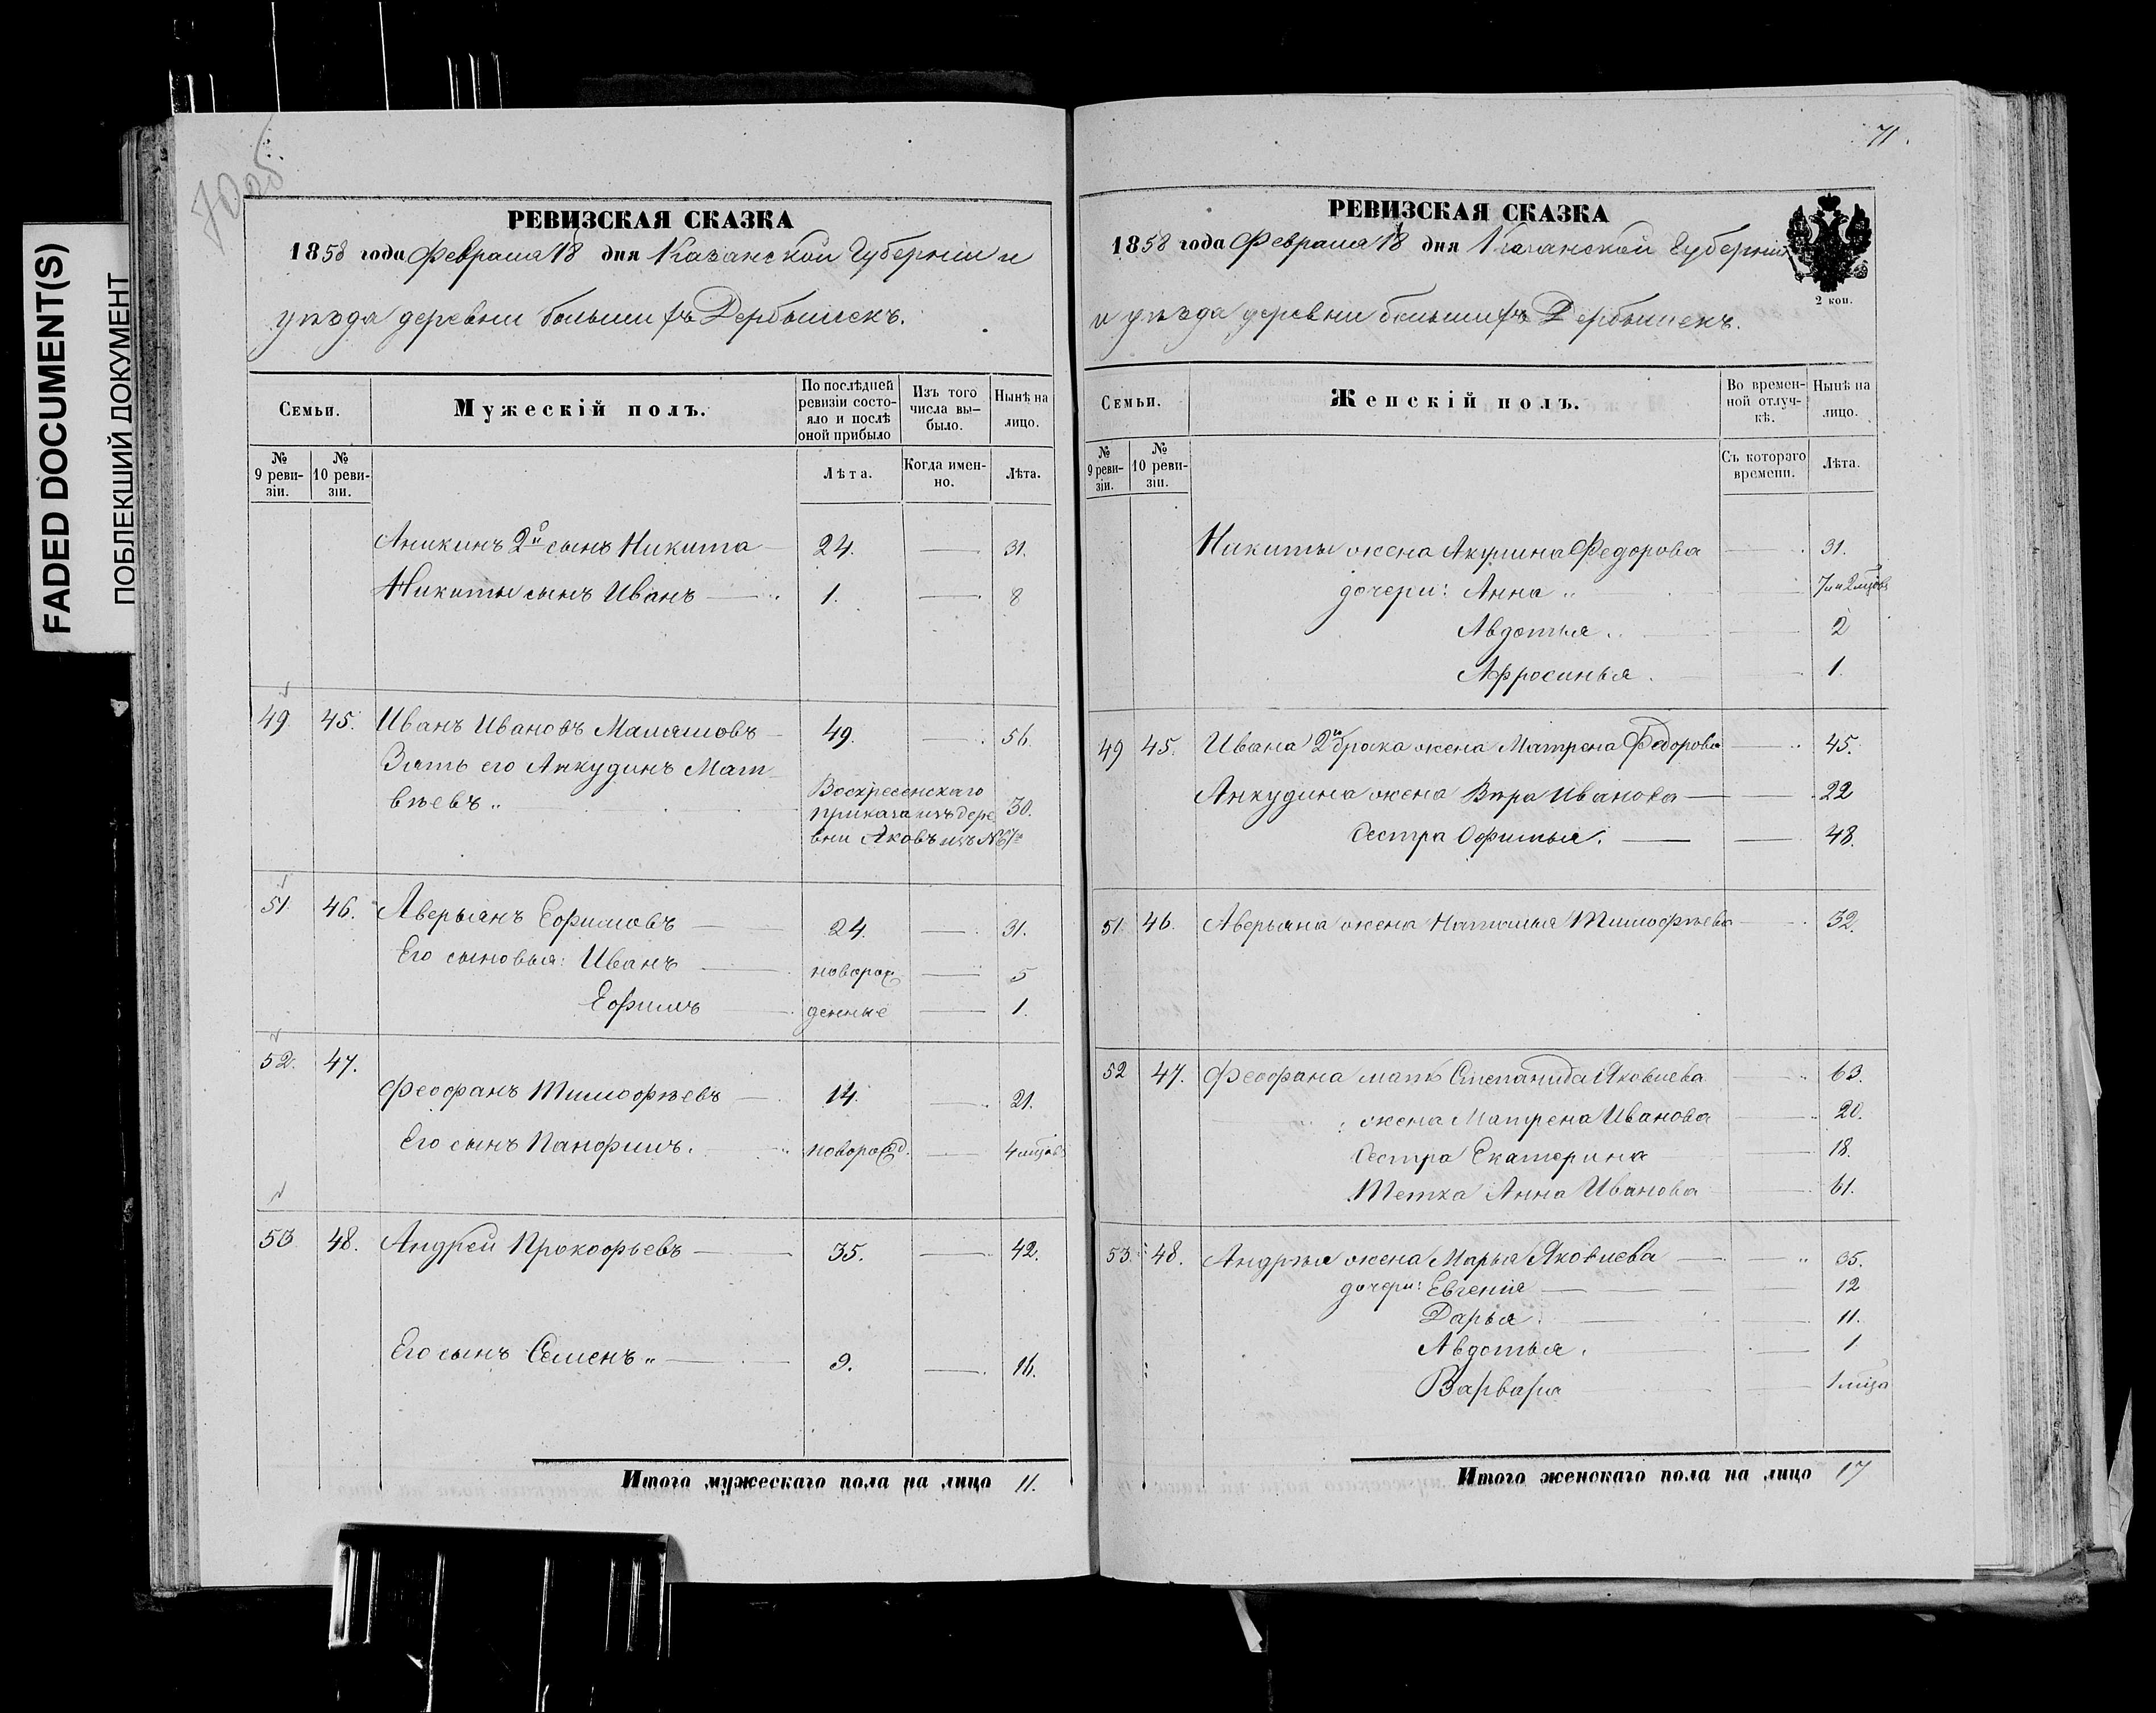 FADED DOCUMENT(S)
ПОБЛЕКШИЙ ДОКУМЕНТ
70 об.
РЕВИЗСКАЯ СКАЗКА
1858 года Февраля 18 дня Казанской Губерніи и
уѣзда деревни большихъ Дербышекъ.
Семьи.
Мужескій полъ.
По послѣдней ревизіи состояло и послѣ оной прибыло
Изъ того числа выбыло.
Нынѣ на лицо.
№ 9 ревизіи.
№ 10 ревизіи.
Лѣта.
Когда именно.
Лѣта.
Аникинъ 2й сынъ Никита 24. 31.
Никиты сынъ Иванъ 1. 8
49. 45. Ивань Ивановъ 49. 56.
Зять его Анкудинъ Мат
вѣевъ Воскресенскаго
приказа изъ дере 30.
вни
51. 46. Аверьянъ Ефимовъ 24. 31.
Его сыновья: Иванъ новорож 5
Ефимъ денные 1.
52. 47.
Феофанъ Тимофѣевъ 14. 21.
Его сынъ Панфилъ. новорожд. 4 мцовъ
53 48. Андрей Прокофьевъ 35. 42.
Его сынъ Семенъ 9. 16.
Итого мужескаго пола на лицо 11.
71.
РЕВИЗСКАЯ СКАЗКА
1858 года Февраля 18 дня Казанской Губерніи
2 коп.
и уѣзда деревни большихъ Дербышекъ.
Семьи.
Женскій полъ.
Во временной отлучкѣ.
Нынѣ на лицо.
№ 9 ревизіи.
№ 10 ревизіи.
Съ котораго времени.
Лѣта.
Никиты жена Акулина Федорова 31.
дочери: Анна 7 и 2 мцовъ
Авдотья 2
Афросинья 1.
49 45. Ивана 2го брака жена Матрена Федорова 45.
Анкудина жена Вѣра Иванова 22
Сестра Офимья. 48.
51. 46. Аверьяна жена Наталья Тимофѣева 32.
52 47. Феофана мать Степанида Яковлева 63.
жена Матрена Иванова 20.
Сестра Екатерина 18.
Тетка Анна Иванова 61.
53. 48. Андрѣя жена Марья Яковлева 35.
дочери: Евгенія 12
Дарья 11.
Авдотья. 1
Варвара 1 мца
Итого женскаго пола на лицо 17